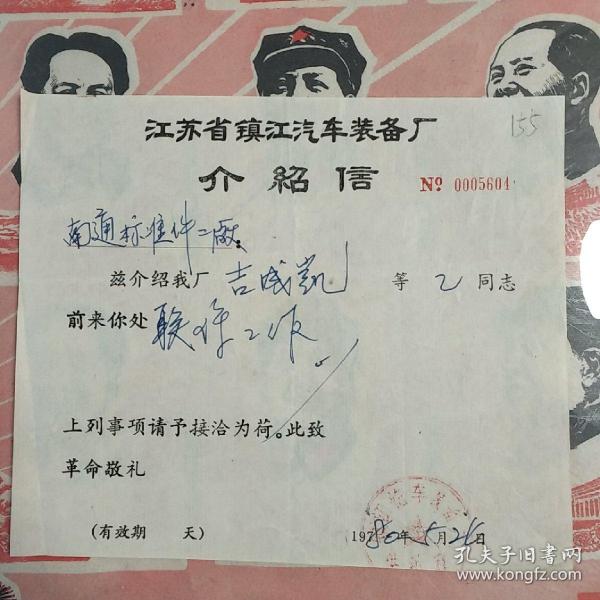 江苏省镇江汽车装备厂
155
介绍信
№ 0005604
南通标准件二厰:
兹介绍我厂 吉成凯 等 乙 同志
前来你处 联系工作
上列事项请予接洽为荷。此致
革命敬礼
(有效期 天)
1980年5月26日
孔夫子旧书网
www.kongfz.com